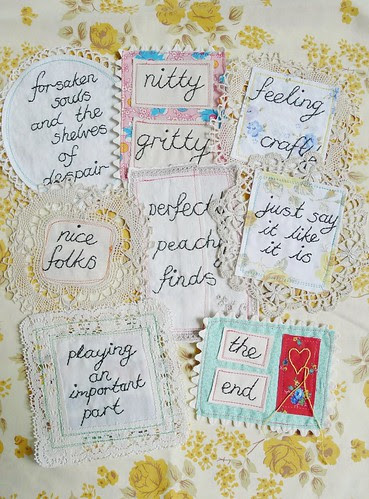 forsaken
souls
and the
shelves
of
despair
nitty
gritty
feeling
crafty
nice
folks
perfect
peachy
finds
just say
it like
it is
playing
an
important
part
the
end